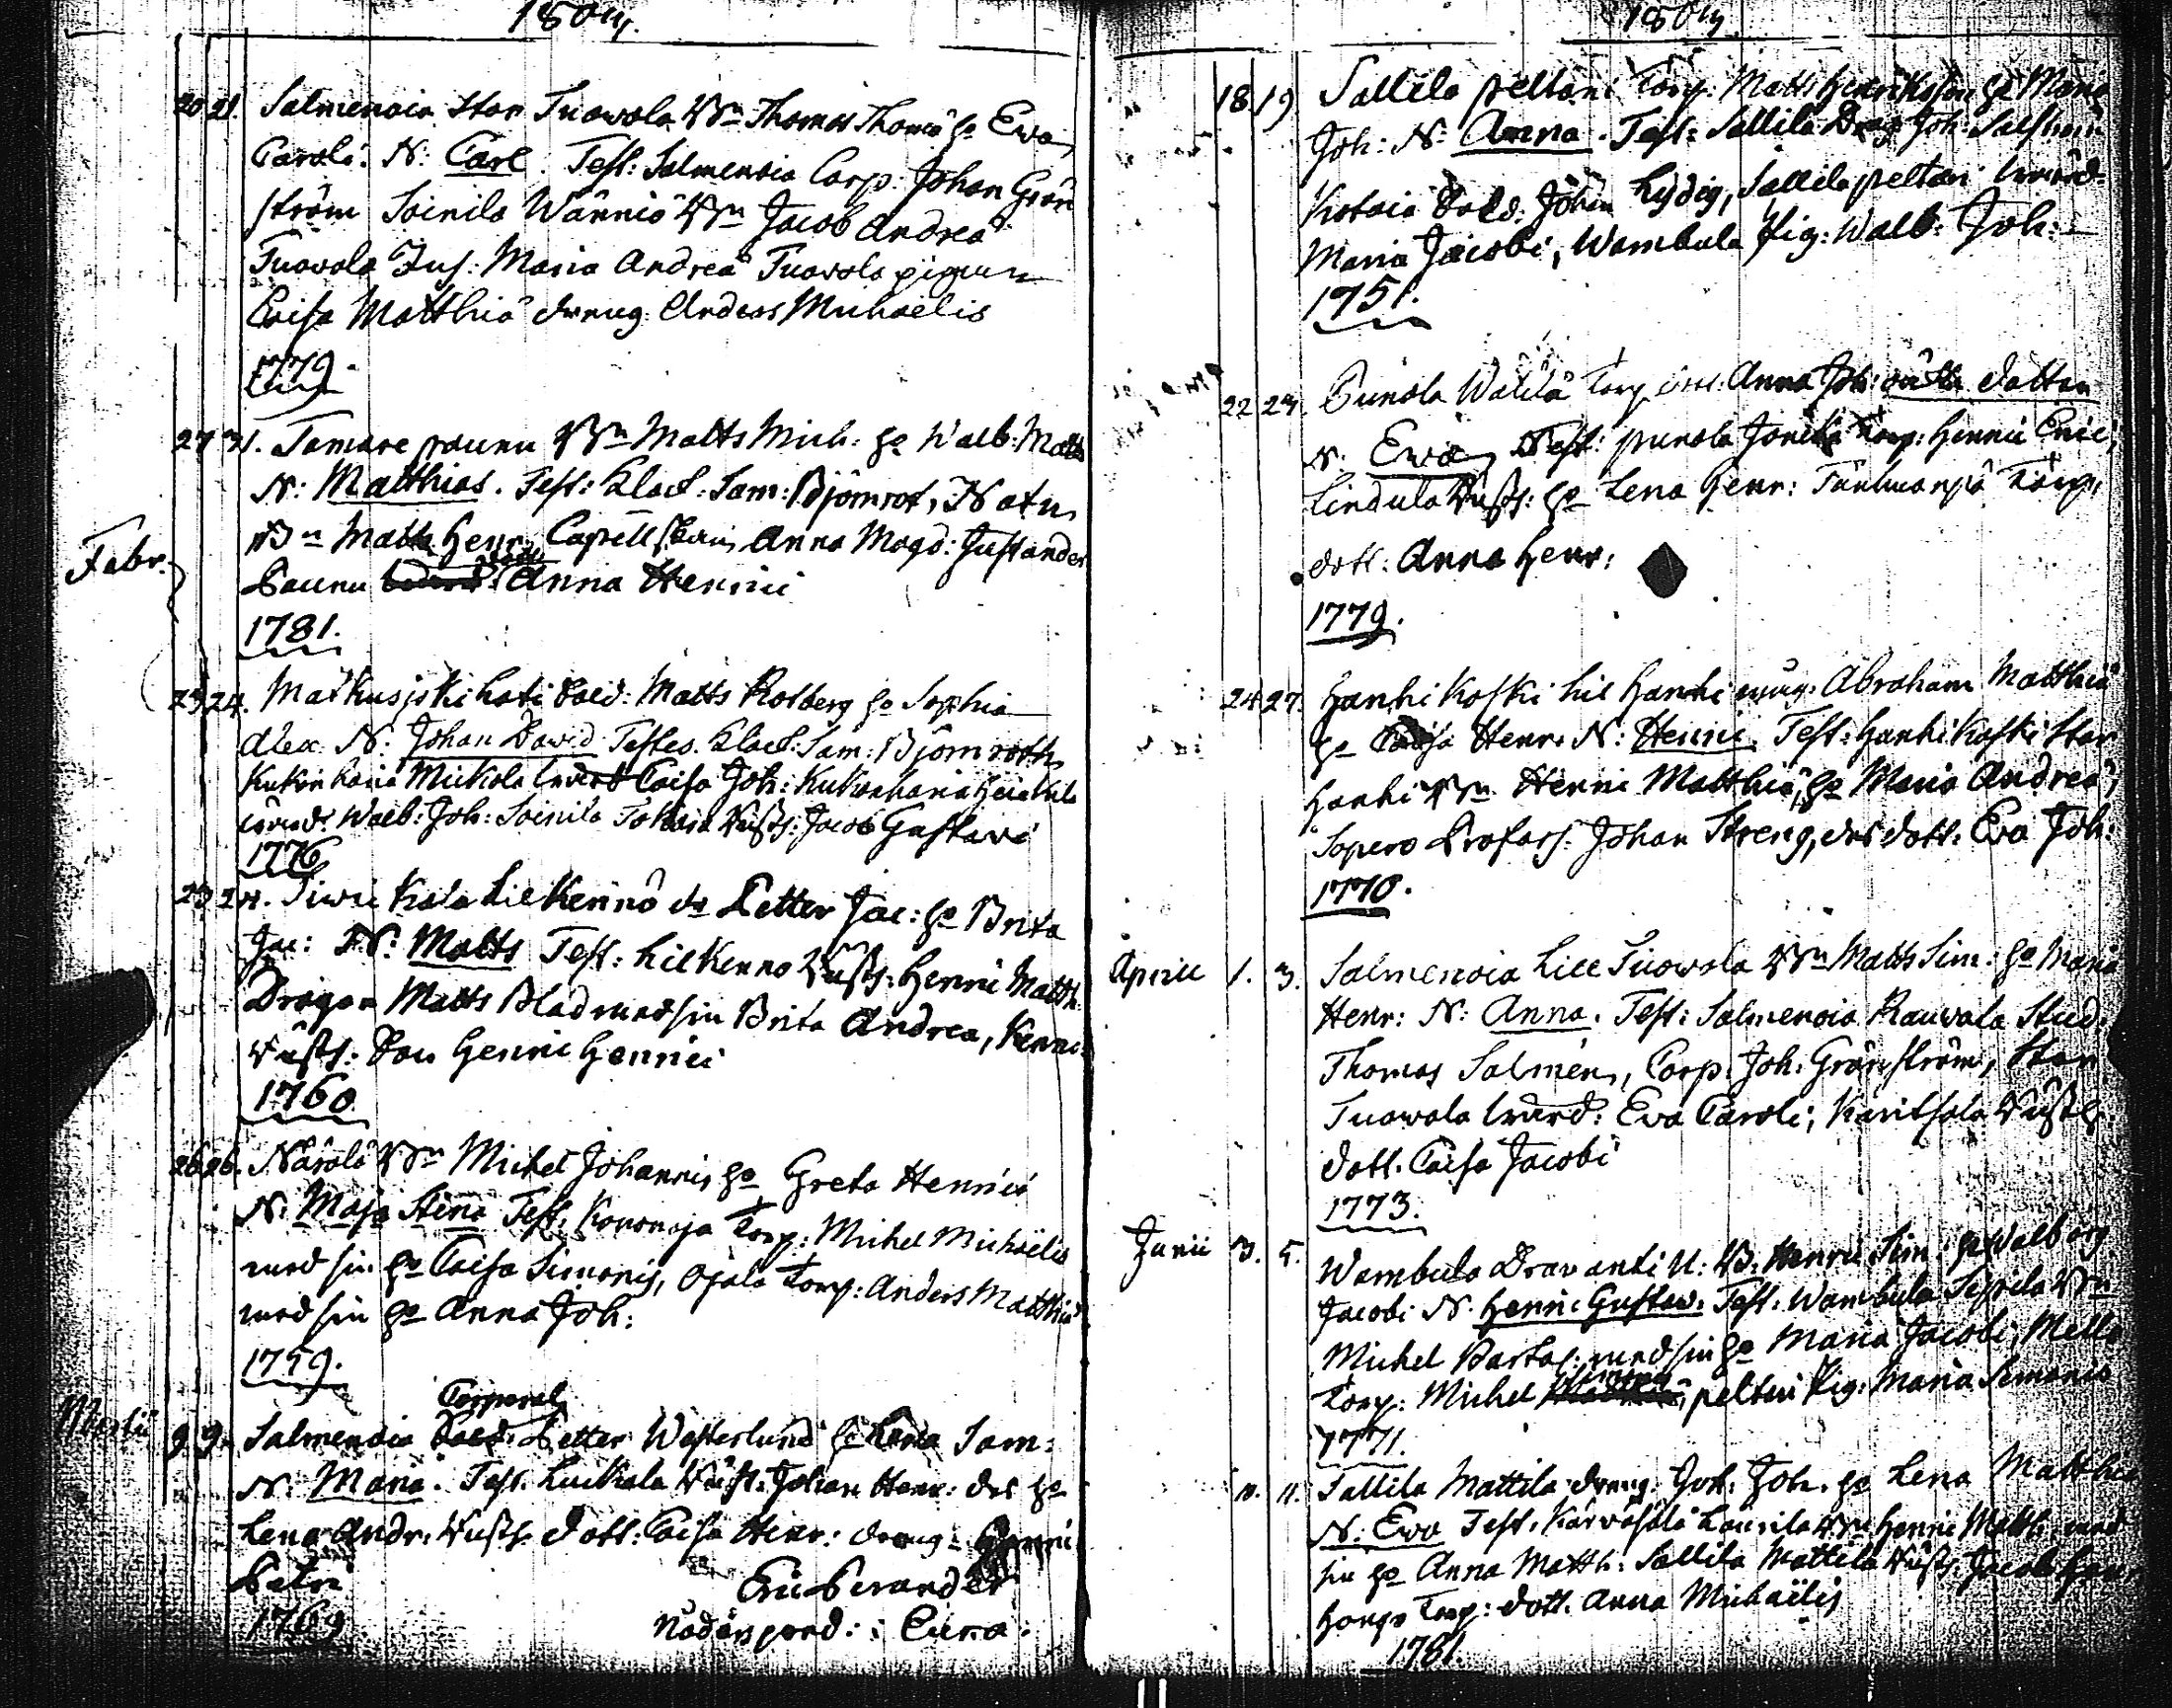 1804.
20 21. Salmenoia Stor Tuowola Bn Thomas Thomæ ho Ewa
Caroli. N: Carl. Test: Salmenoia Corp: Johan Grön
ström Soinila Wänniö Bn Jacob Andreä
Tuovola Inh: Maria Andreä Tuovola pigan
Caisa Matthiä dreng: Andeas Michaelis
1779.
27 31. Tamare pounu Bn Matts Mich: ho Walb: Matth
N: Matthias. Test: Klock: Sam: Björnrot,
Bn Matth: Henr: Capell Anna Magd: Justander
Pounu Anna Henrici
1781.
Febr.
23 24. Markusjokihati Sold: Matts Rosberg ho Sophia
Alex: N: Johan David. Testes. Klock: Sam: Björnroth,
Mickola Caisa Joh:
Walb: Joh: Soinila Tohois Bußs: Jacob Gustavi
1776
23 24. Siwickala Lilkennö dr Petter Jac: ho Brita
Jac: N: Matts Test: Lilkenno Bußs: Henric Matth:
Dragon Matts Blad med sin Brita Andrea, Kenno
Bußs: Son Henric Henrici
1760.
26 26. Närölä Bn Michel Johannis ho Greta Henrici
N: Maja Stina Test: Kononoja Torp: Michel Michaëlis
med sin ho Caisa Simonis, Ojala Torp: Anders Matthiä
med sin ho Anna Joh:
1759.
Corporal
Martii 9. 9. Salmenoia Sold: Petter Westerlund ho Lena Sam:
N: Maria. Test. Luckala Bußs: Johan Henr: des ho
Lena Andr: Bußs: dott: Caisa Henr: dreng Henric
Petri Eric Perander
1769 Nådårspred: i Eura.
1804
18. 19. Sallila peltoni Torp: Matts Henriksson ho Maria
Joh: N: Anna. Test: Sallila Drag: Joh:
Kotoia Sold: Johan Lydig, Sallila peltoni
Maria Jacobi, Wambula Pig: Walb: Joh:
1751.
22 24. Punola Wälilä Torp dott: Anna Joh: oäkta dotter
N: Ewa, Test: punola Torp: Henric Eric:
Lindula Bußs: ho Lena Henr: Torp:
dott: Anna Henr:
1779.
24 27. Hanhikoski lil Hanhi mug: Abraham Matthiä
ho Caisa Henr. N: Henric. Test: Hanhikoski Stor
Hanhi Bn Henric Matthiä, ho Maria Andreä,
Sopero Profoss: Johan Streng, des dott: Eva Joh:
1770.
Aprill 1. 3. Salmenoia Lill Tuowola Bn Matts Sim: ho Maria
Henr: N: Anna. Test: Salmenoia Rauwola Stud:
Thomas Salmén, Corp: Joh: Grönström, Stor
Tuowola Eva Caroli; Karitsala Bußs:
dott. Caisa Jacobi
1773.
Junii 3. 5. Wambula Dravanti U: B: Henric Sim: ho Walborg
Jacobi N: Henric Gustav. Test: Wambula Seppela Bn
Michel Bartol: med sin ho Maria Jacobi, Mello
Torp: Michel peltni Pig: Maria Simonis
1771.
11. Sallila Mattila dreng: Joh: Joh. ho Lena Matthiä
N: Ewa Test: Kärväsälä Laurila Bn Henric Matth: med
sin ho Anna Matth: Sallila Mattila Bußs: Jacob Henr
Honga Torp: dott. Anna Michaëlis
1781.